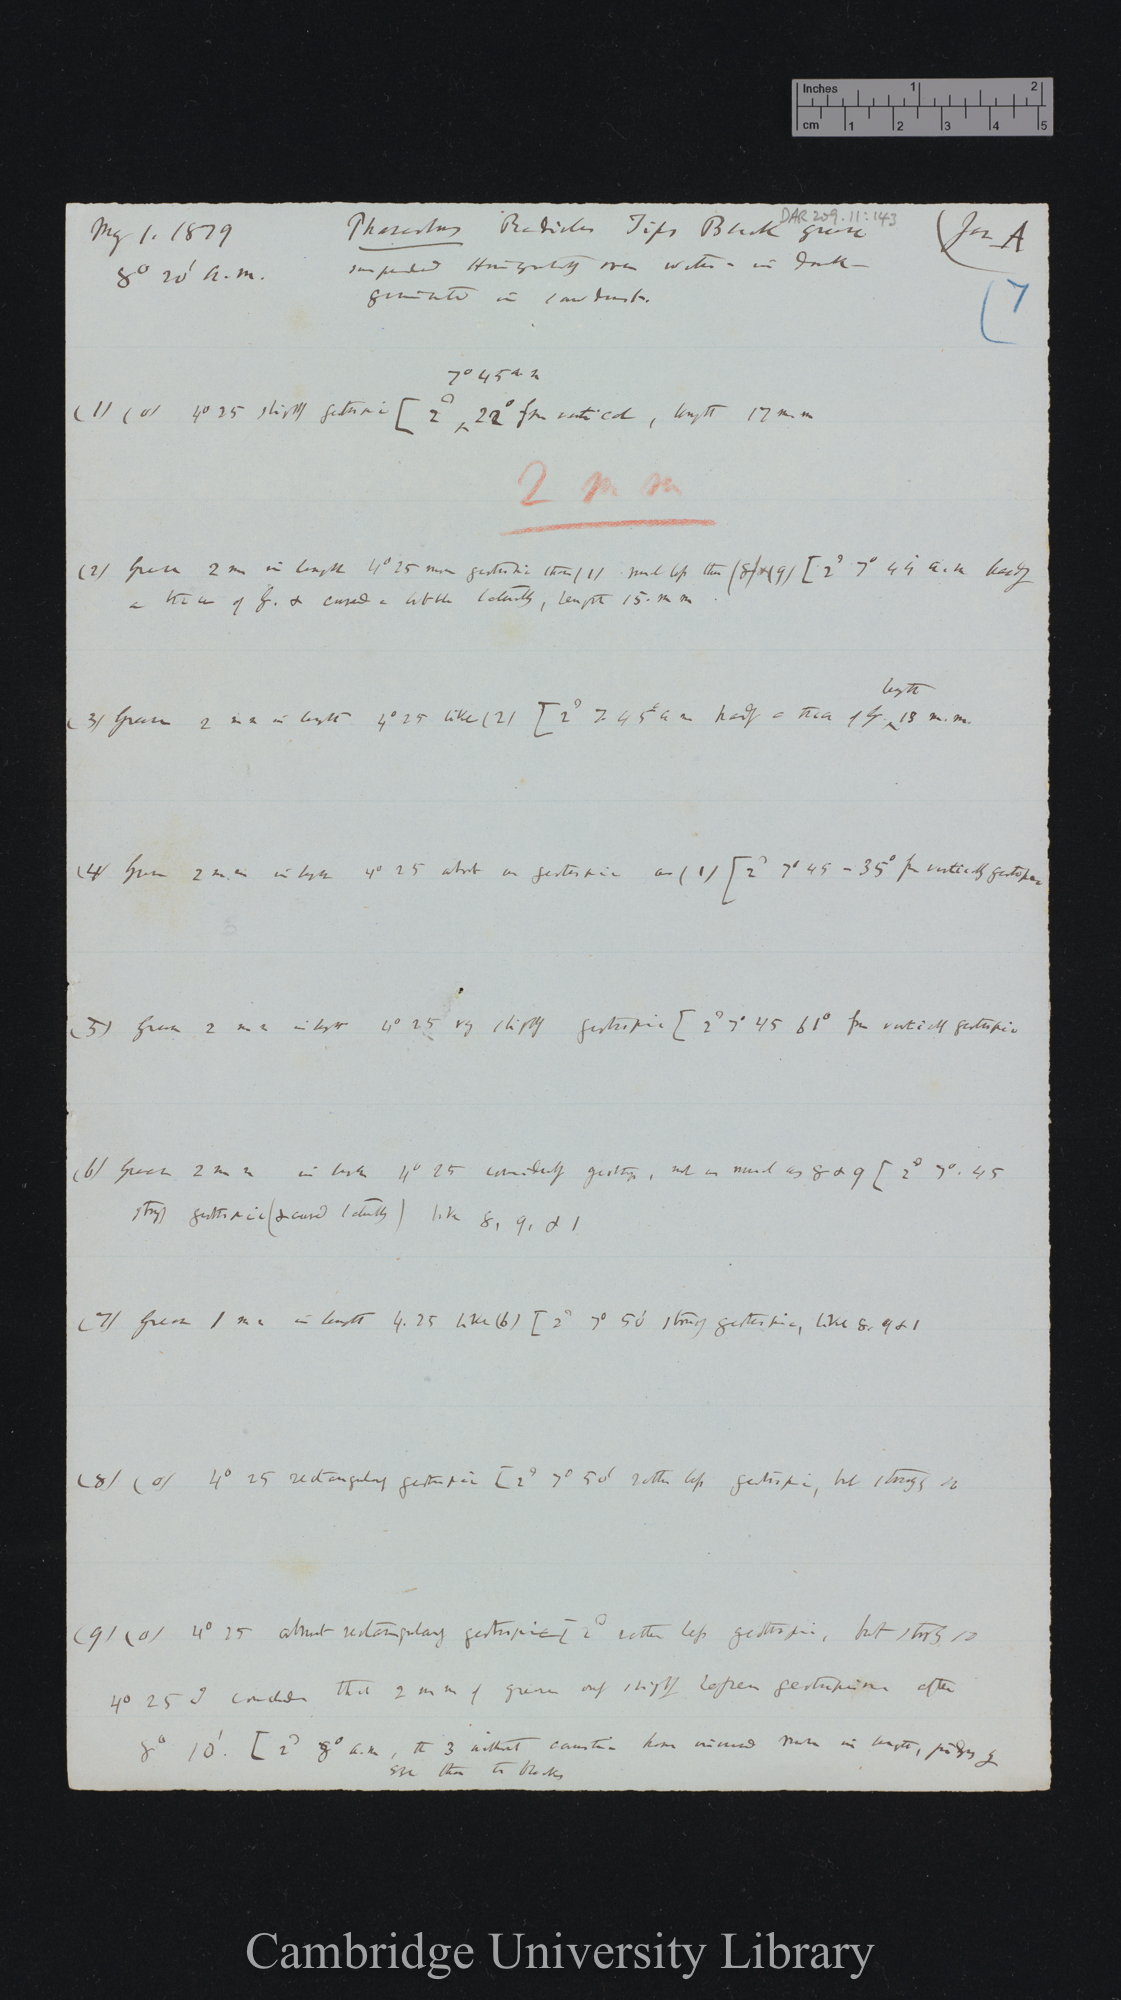 Inches 1 2
cm 1 2 3 4 5
DAR 209.11:143
May 1. 1879 Phaseolus Radicles Tips Black grease (Jar A
8° 20' a.m. suspended Horizontally over water - in dark -
germinated in sawdust.
(7
7° 45 a.m
(1) (o) 4° 25 slightly geotropic [2d 22° from vertical, length 17 m.m
2 m m
(2) Grease 2 mm in length 4° 25 more geotropic than (1) much less than (8) & (9) [2d 7° 45 a.m hardly
a trace of G. & curved a little laterally, length 15. m m
length
(3) Grease 2 m m in length 4° 25 like (2) [2d 7. 45 a m hardly a trace of G. 18 m.m.
(4) Grease 2 m.m in length 4° 25 about as geotropic as (1) [2d 7° 45 - 35° from vertically geotropic
(5) Grease 2 m m in length 4° 25 very slightly geotropic [2d 7° 45 61° from vertically geotropic
(6) Grease 2 m m in length 4° 25 considerably geotrop, not as much as 8 & 9 [2d 7°. 45
strongly geotropic (& curved laterally) like 8, 9, & 1
(7) Grease 1 m m in length 4. 25 like (6) [2d 7° 50' strongly geotropic, like 8, 9 & 1
(8) (o) 4° 25 rectangularly geotropic [2d 7° 50' rather less geotropic, but strongly so
(9) (o) 4° 25 almost rectangularly geotropic [2d rather less geotropic, but strongly so
4° 25 I conclude that 2 m m of grease only slightly lessen geotropism after
8° 10'. [2d 8° a.m, the 3 without caustic have increased more in length, judging by
eye than the blacks
Cambridge University Library